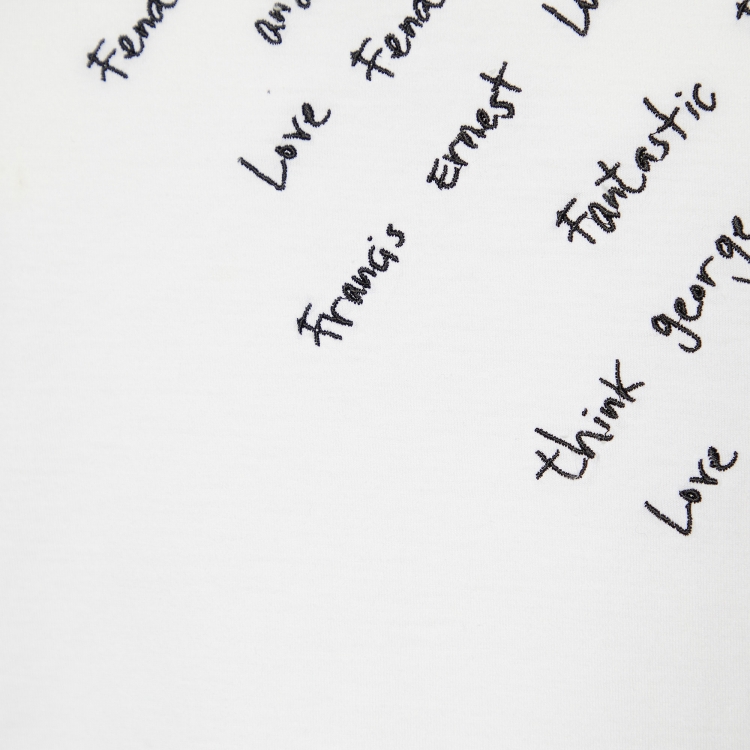 Fend
and
Love Fend
Francis Ernest Lo
Fantastic
think george
Love